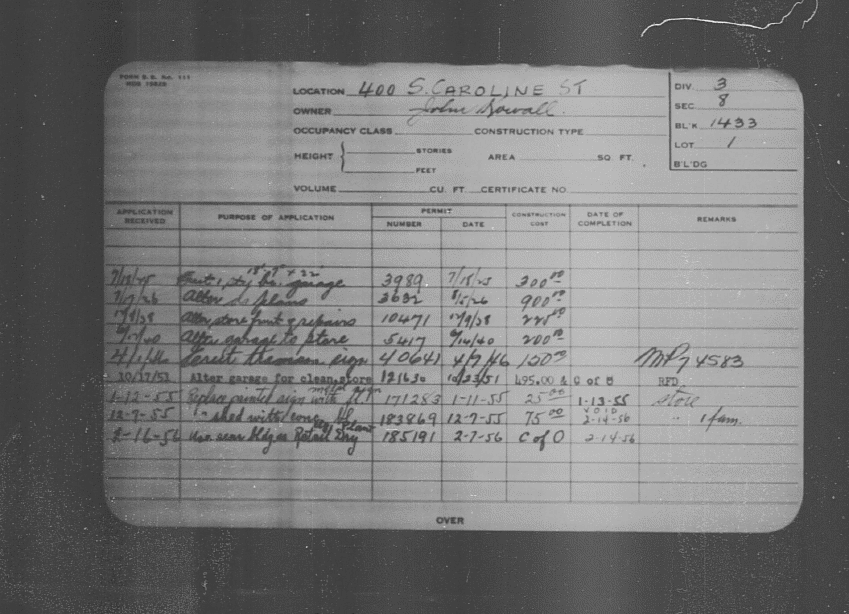 FORM B.B. No. 111
LOCATION 400 S. CAROLINE ST
DIV. 3
OWNER John Kowall
SEC 8
OCCUPANCY CLASS CONSTRUCTION TYPE
BL'K 1433
HEIGHT STORIES AREA SQ. FT.
LOT 1
FEET
B'L'DG
VOLUME CU. FT. CERTIFICATE NO.
APPLICATION RECEIVED PURPOSE OF APPLICATION PERMIT NUMBER DATE CONSTRUCTION COST DATE OF COMPLETION REMARKS
18' 9" x 22'
7/18/25 1 sty garage 3989 7/18/25 300.00
7/17/26 Alter as plans 3632 900.00
Alter store front & repairs 10471 225.00
Alter garage to store 5417 6/14/40 200.00
4/1/46 Erect sign 40641 4/7/46 150.00 4583
Alter garage for clean.store 121630 10/23/51 495.00 & C of O RFD
metal sign
1-12-55 Replace painted sign with 171283 1-11-55 25.00 1-13-55 store
VOID
12-7-55 " shed with conc. 183869 12-7-55 75.00 2-14-56 " 1 fam.
Plant
2-16-56 Use rear bldg as Retail Dry 185191 2-7-56 C of O 2-14-56
OVER